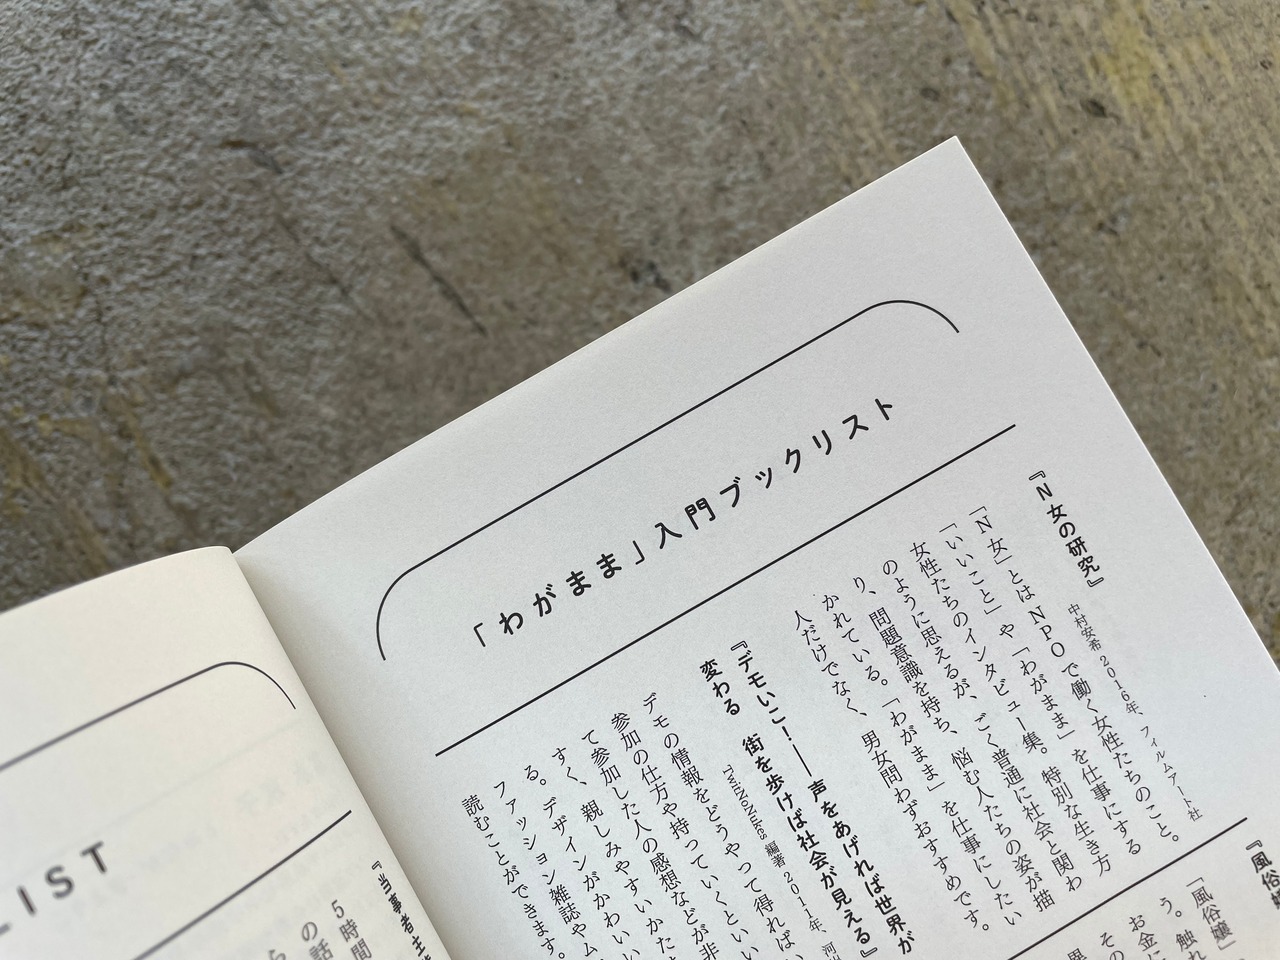 「わがまま」入門ブックリスト
『N女の研究』
中村安希 2016年、フィルムアート社
「N女」とはNPOで働く女性たちのこと。
「いいこと」や「わがまま」を仕事にする
女性たちのインタビュー集。特別な生き方
のように思えるが、ごく普通に社会と関わ
り、問題意識を持ち、悩む人たちの姿が描
かれている。「わがまま」を仕事にしたい
人だけでなく、男女問わずおすすめです。
『デモいこ！――声をあげれば世界が
変わる　街を歩けば社会が見える』
TwitNoNukes 編著 2011年、河
デモの情報をどうやって得ればい
参加の仕方や持っていくといい
て参加した人の感想などが非
すく、親しみやすいかた
る。デザインがかわいい
ファッション雑誌やム
読むことができます。
『風俗
「風俗嬢」
う。触れ
お金に
その
異
LIST
『当事者主
5時間
の話
ら